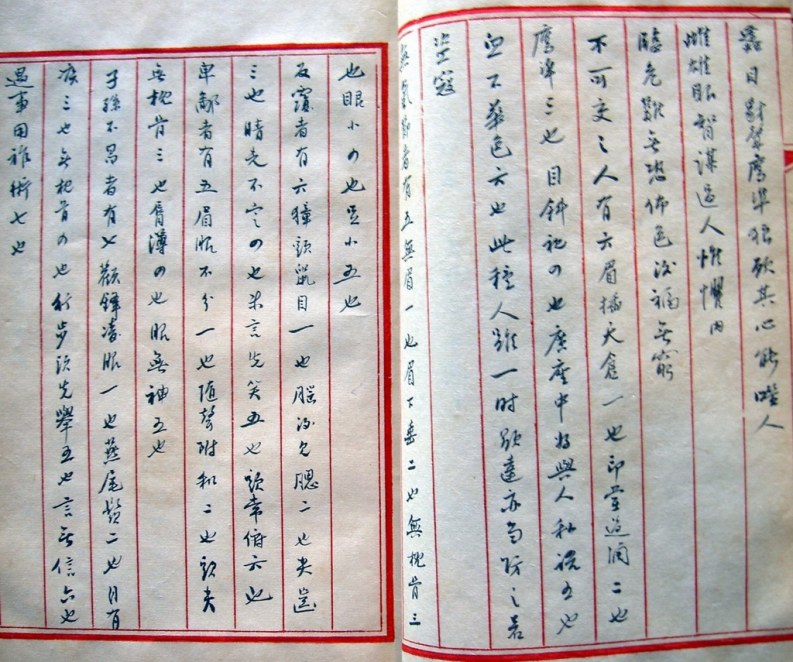 目豺聲鷹準狼顾其心能噬人
雌雄眼智謀過人惟懼内
臨危難無恐怖色後禍無窮
不可交之人有六眉插天倉一也印堂過濶二也
鷹準三也目斜視四也廣座中好與人私語五也
面不華色六也此種人雖一時顯達亦當防之若
盜寇
無氣節者有五無眉一也眉下垂二也無枕骨三
也眼小四也小五也
反覆者有六獐頭鼠目一也腦後見腮二也尖
三也睛光不定四也未言先笑五也頭常俯六也
卑鄙者有五眉眼不分一也随聲附和二也頭尖
無枕骨三也唇薄四也眼無神五也
子孫不昌者有七顴鋒凌眼一也燕尾鬚二也目有
三也無枕骨四也行步頭先舉五也言無信六也
遇事用雜術七也